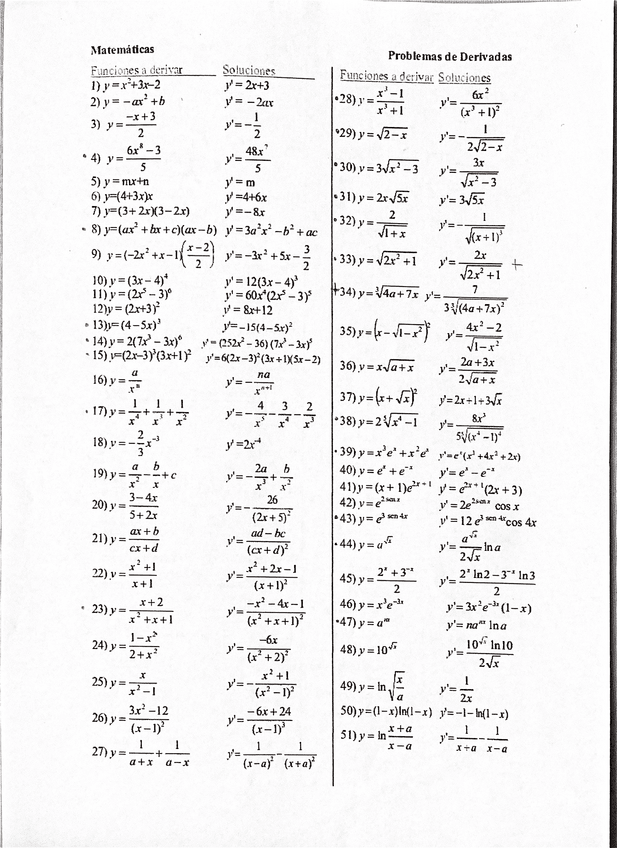 Matemáticas
Funciones a derivar Soluciones
1) y = x²+3x−2 y' = 2x+3
2) y = −ax² + b y' = −2ax
3) y = (−x+3)/2 y' = −1/2
4) y = (6x⁸−3)/5 y' = 48x⁷/5
5) y = mx+n y' = m
6) y=(4+3x)x y' =4+6x
7) y=(3+2x)(3−2x) y' = −8x
8) y=(ax² + bx + c)(ax−b) y' = 3a²x² − b² + ac
9) y = (−2x² + x−1)((x−2)/2) y' = −3x² + 5x − 3/2
10) y = (3x − 4)⁴ y' = 12(3x − 4)³
11) y = (2x⁵ − 3)⁶ y' = 60x⁴(2x⁵ − 3)⁵
12)y = (2x+3)² y' = 8x+12
13)y= (4−5x)³ y'=−15(4−5x)²
14) y = 2(7x³ − 3x)⁶ y' = (252x² − 36)(7x³ − 3x)⁵
15) y=(2x−3)³(3x+1)² y'=6(2x−3)²(3x+1)(5x−2)
16) y = a/xⁿ y' = −na/xⁿ⁺¹
17) y = 1/x⁴ + 1/x³ + 1/x² y' = −4/x⁵ − 3/x⁴ − 2/x³
18) y = −2/3 x⁻³ y' =2x⁻⁴
19) y = a/x² − b/x + c y' = −2a/x³ + b/x²
20) y = (3−4x)/(5+2x) y' = −26/(2x+5)²
21) y = (ax+b)/(cx+d) y' = (ad−bc)/(cx+d)²
22) y = (x²+1)/(x+1) y' = (x²+2x−1)/(x+1)²
23) y = (x+2)/(x²+x+1) y' = (−x²−4x−1)/(x²+x+1)²
24) y = (1−x²)/(2+x²) y' = −6x/(x²+2)²
25) y = x/(x²−1) y' = −(x²+1)/(x²−1)²
26) y = (3x²−12)/(x−1)² y' = (−6x+24)/(x−1)³
27) y = 1/(a+x) + 1/(a−x) y' = 1/(x−a)² − 1/(x+a)²
Problemas de Derivadas
Funciones a derivar Soluciones
28) y = (x³−1)/(x³+1) y' = 6x²/(x³+1)²
29) y = √(2−x) y' = −1/(2√(2−x))
30) y = 3√(x²−3) y' = 3x/√(x²−3)
31) y = 2x√(5x) y' = 3√(5x)
32) y = 2/√(1+x) y' = −1/√((x+1)³)
33) y = √(2x²+1) y' = 2x/√(2x²+1) +
+34) y = ∛(4a+7x) y' = 7/(3∛((4a+7x)²))
35) y = (x−√(1−x²))² y' = (4x²−2)/√(1−x²)
36) y = x√(a+x) y' = (2a+3x)/(2√(a+x))
37) y = (x+√x)² y' = 2x+1+3√x
38) y = 2⁵√(x⁴−1) y' = 8x³/(5⁵√((x⁴−1)⁴))
39) y = x³eˣ + x²eˣ y' = eˣ(x³+4x²+2x)
40) y = eˣ + e⁻ˣ y' = eˣ − e⁻ˣ
41) y = (x + 1)e²ˣ⁺¹ y' = e²ˣ⁺¹(2x + 3)
42) y = e^(2 sen x) y' = 2e^(2 sen x) cos x
43) y = e^(3 sen 4x) y' = 12 e^(3 sen 4x) cos 4x
44) y = a^√x y' = a^√x/(2√x) ln a
45) y = (2ˣ + 3⁻ˣ)/2 y' = (2ˣ ln2 − 3⁻ˣ ln3)/2
46) y = x³e⁻³ˣ y' = 3x²e⁻³ˣ(1−x)
47) y = aⁿˣ y' = naⁿˣ ln a
48) y = 10^√x y' = 10^√x ln10/(2√x)
49) y = ln√(x/a) y' = 1/2x
50) y = (1−x)ln(1−x) y' = −1−ln(1−x)
51) y = ln (x+a)/(x−a) y' = 1/(x+a) − 1/(x−a)